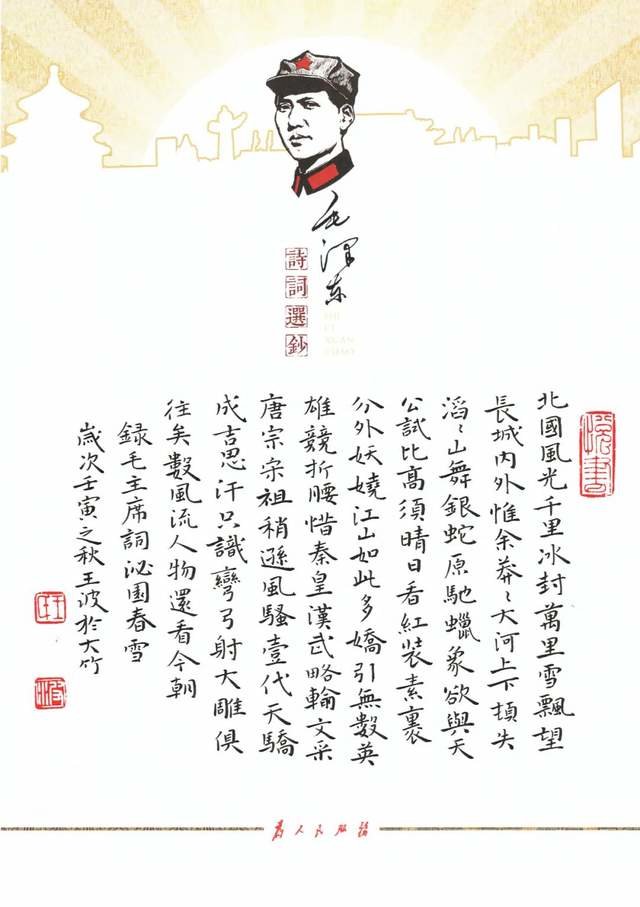 毛澤东
詩詞選鈔
SHI
CI
XUAN
CHAO
北國風光千里冰封萬里雪飄望
長城内外惟余莽〻大河上下頓失
滔〻山舞銀蛇原馳蠟象欲與天
公試比高須晴日看紅裝素裹
分外妖嬈江山如此多嬌引無數英
雄競折腰惜秦皇漢武略輸文采
唐宗宋祖稍遜風騷壹代天驕
成吉思汗只識彎弓射大雕俱
往矣數風流人物還看今朝
録毛主席詞沁園春雪
歲次壬寅之秋王波於大竹
為人民服務